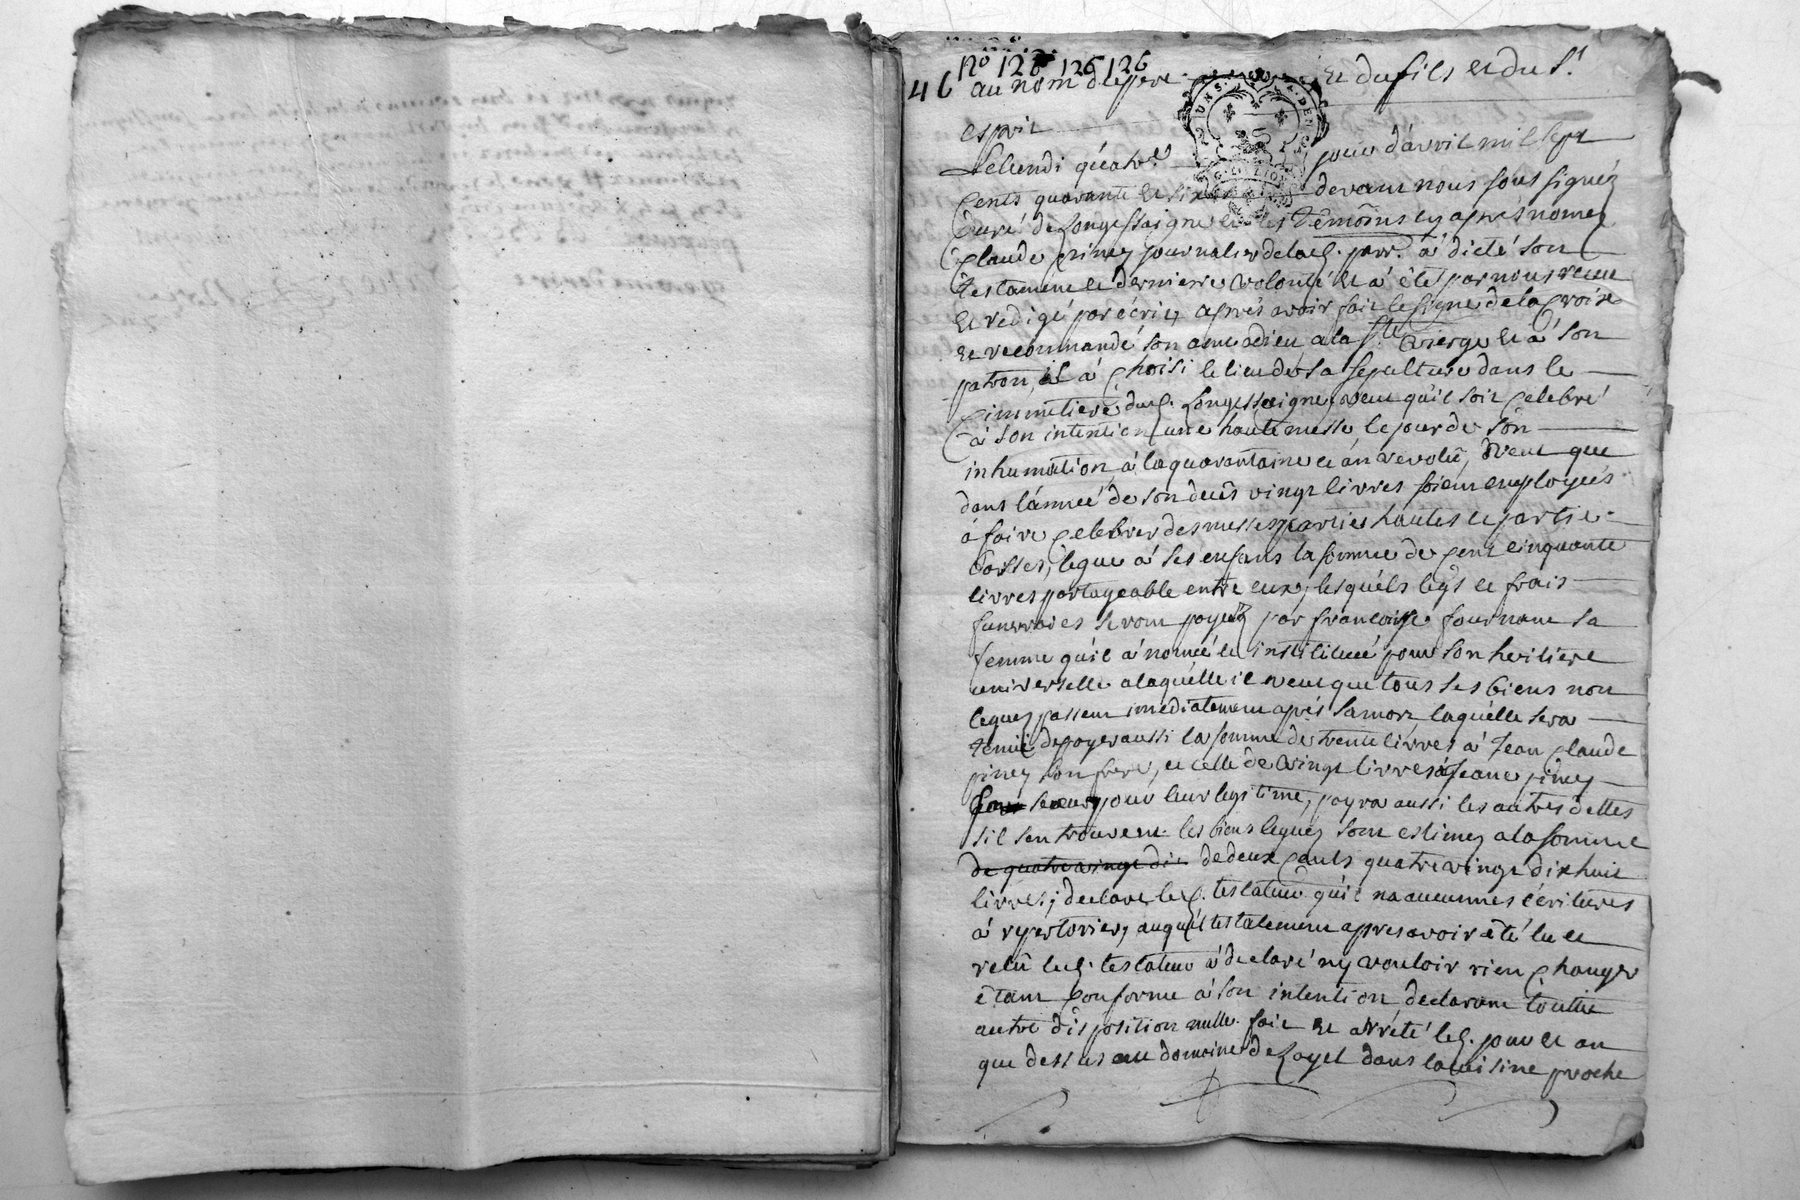 46
no 126 126 126
au nom du pere et du fils et du st
esprit
Le lundi quatre jour d'avril mil sept
cents quarante et six devant nous sous signéz
Curé de Longessaigne et les témoins cy aprés nomez
Claude piney journalier de lad. parr. à dicté son
testament et derniere volonté et à été par nous reçue
et redigé par écrit, aprés avoir fait le signe de la Croix
et recommandé son ame à dieu, a la ste vierge et à son
patron, il à choisi le lieu de sa sepulture dans le
Cimmetiere dud. Longessaigne, veut qu'il soit celebré
à son intention une haute messe le jour de son
inhumation, à la quarantaine et an revolû, veut que
dans l'année de son decês vingt livres soient employés
à faire celebrer des messes partie hautes et partie
basses, legue à ses enfans la somme de cent cinquante
livres partageable entre eux, lesquéls legs et frais
funeraires seront payéz par francoise fournand sa
femme qu'il à nomée et instituée pour son heritiere
universelle a laquélle il veut que tous ses biens non
leguez passent imédiatement aprés sa mort, laquélle sera
tenüe de payer aussi la somme de trente livres à Jean Claude
piney son frere, et celle de vingt livres à Jeane piney
sa soeur pour leur legitime, payra aussi les autres dettes
s'il s'en trouvent. les biens leguéz sont estimez a la somme
de quatre vingt dix de deux cents quatre vingt dix huit
livres; declare led. testateur qu'il n'a aucunnes écritures
à repertorier, auquél testatement apres avoir été lu et
relû led. testateur à declaré n'y vouloir rien changer
êtant conforme à son intention declarant toutte
autre disposition nulle. fait et arrété led. jour et an
que dessus au domaine de Layet dans la cuisine proche